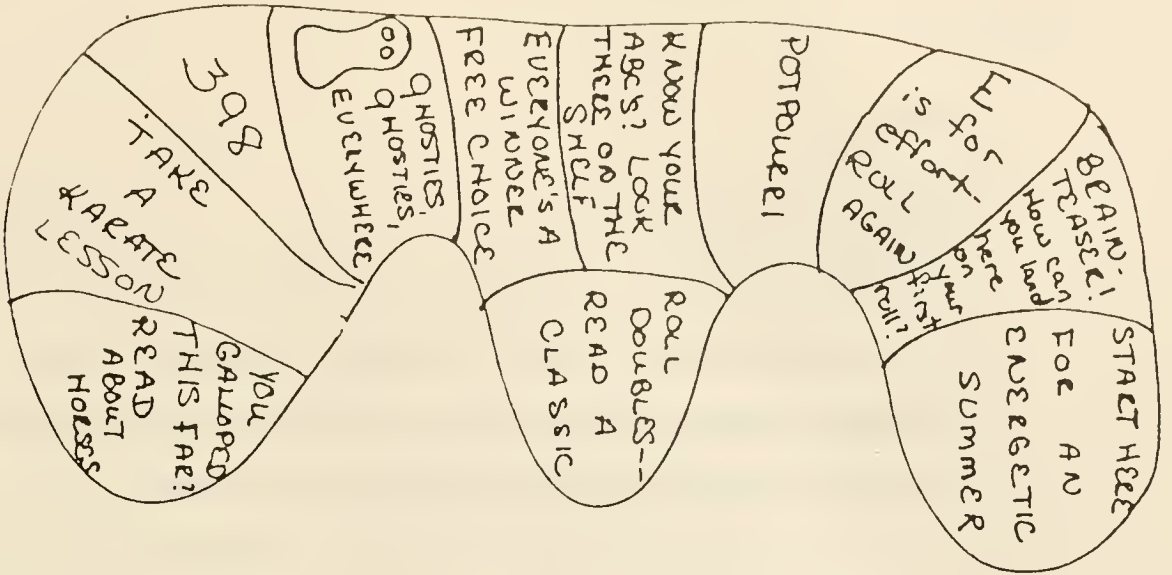 START HERE
FOR AN
ENERGETIC
SUMMER
BRAIN-
TEASER!
How can
you land
here
on
your
first
roll?
E for
is effort-
ROLL
AGAIN
POTPOURRI
KNOW YOUR
ABCs? LOOK
THERE ON THE
SHELF
ROLL
DOUBLES--
READ A
CLASSIC
EVERYONE'S A
WINNER
FREE CHOICE
GHOSTIES,
GHOSTIES,
EVERYWHERE
398
TAKE
A
KARATE
LESSON
YOU
GALLOPED
THIS FAR?
READ
ABOUT
HORSES